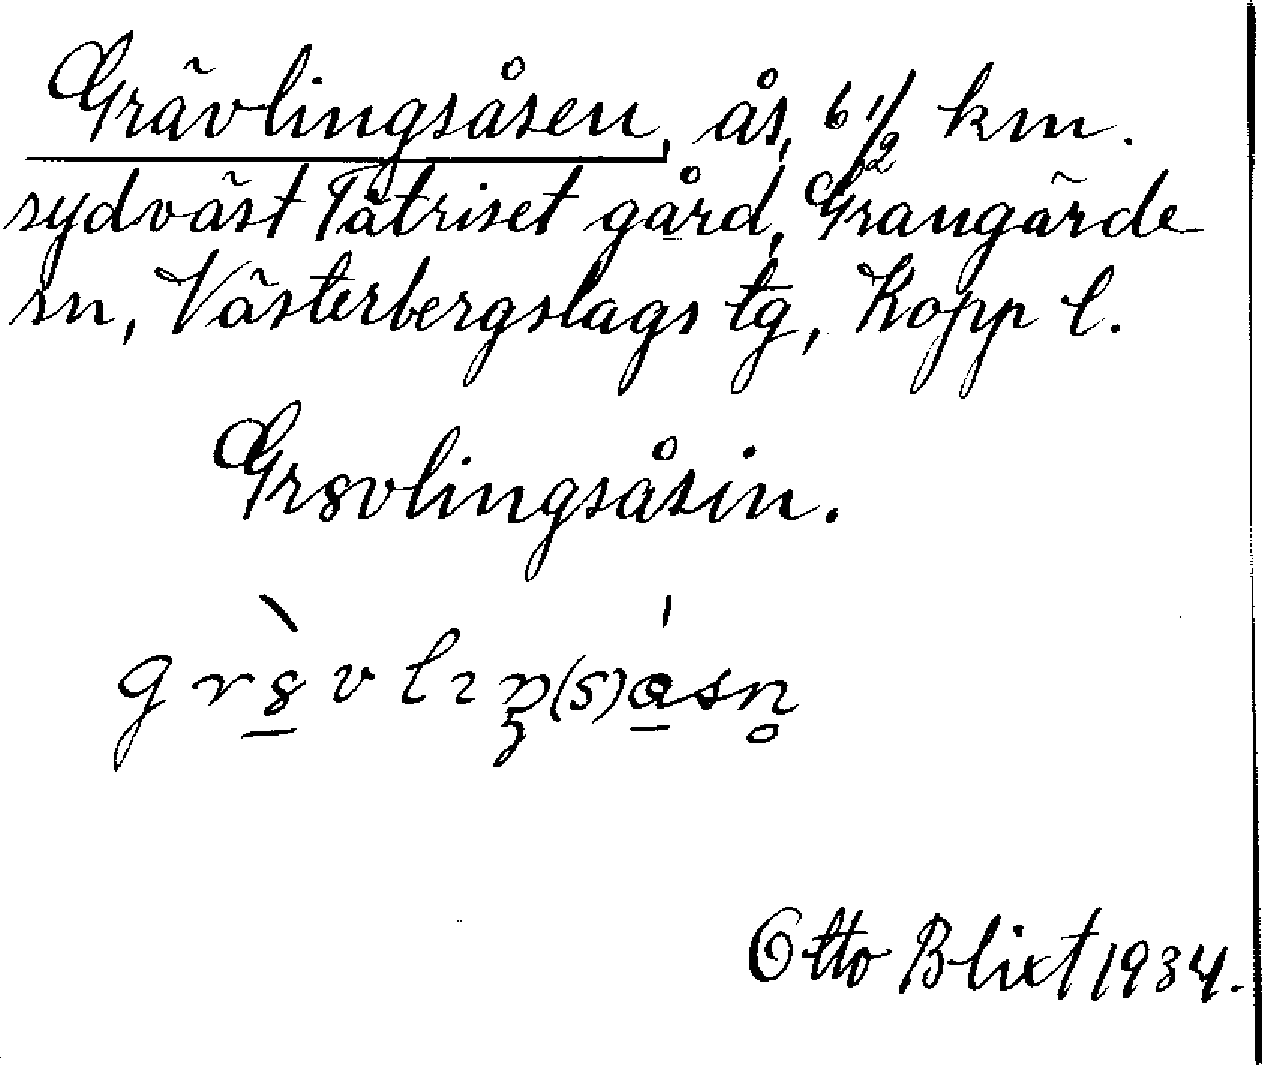 Grävlingsåsen, ås, 6 1/2 km.
sydväst Tätriset gård, Grangärde
sn, Västerbergslags tg, Kopp l.
Grȣvlingsåsin.
Otto Blixt 1934.